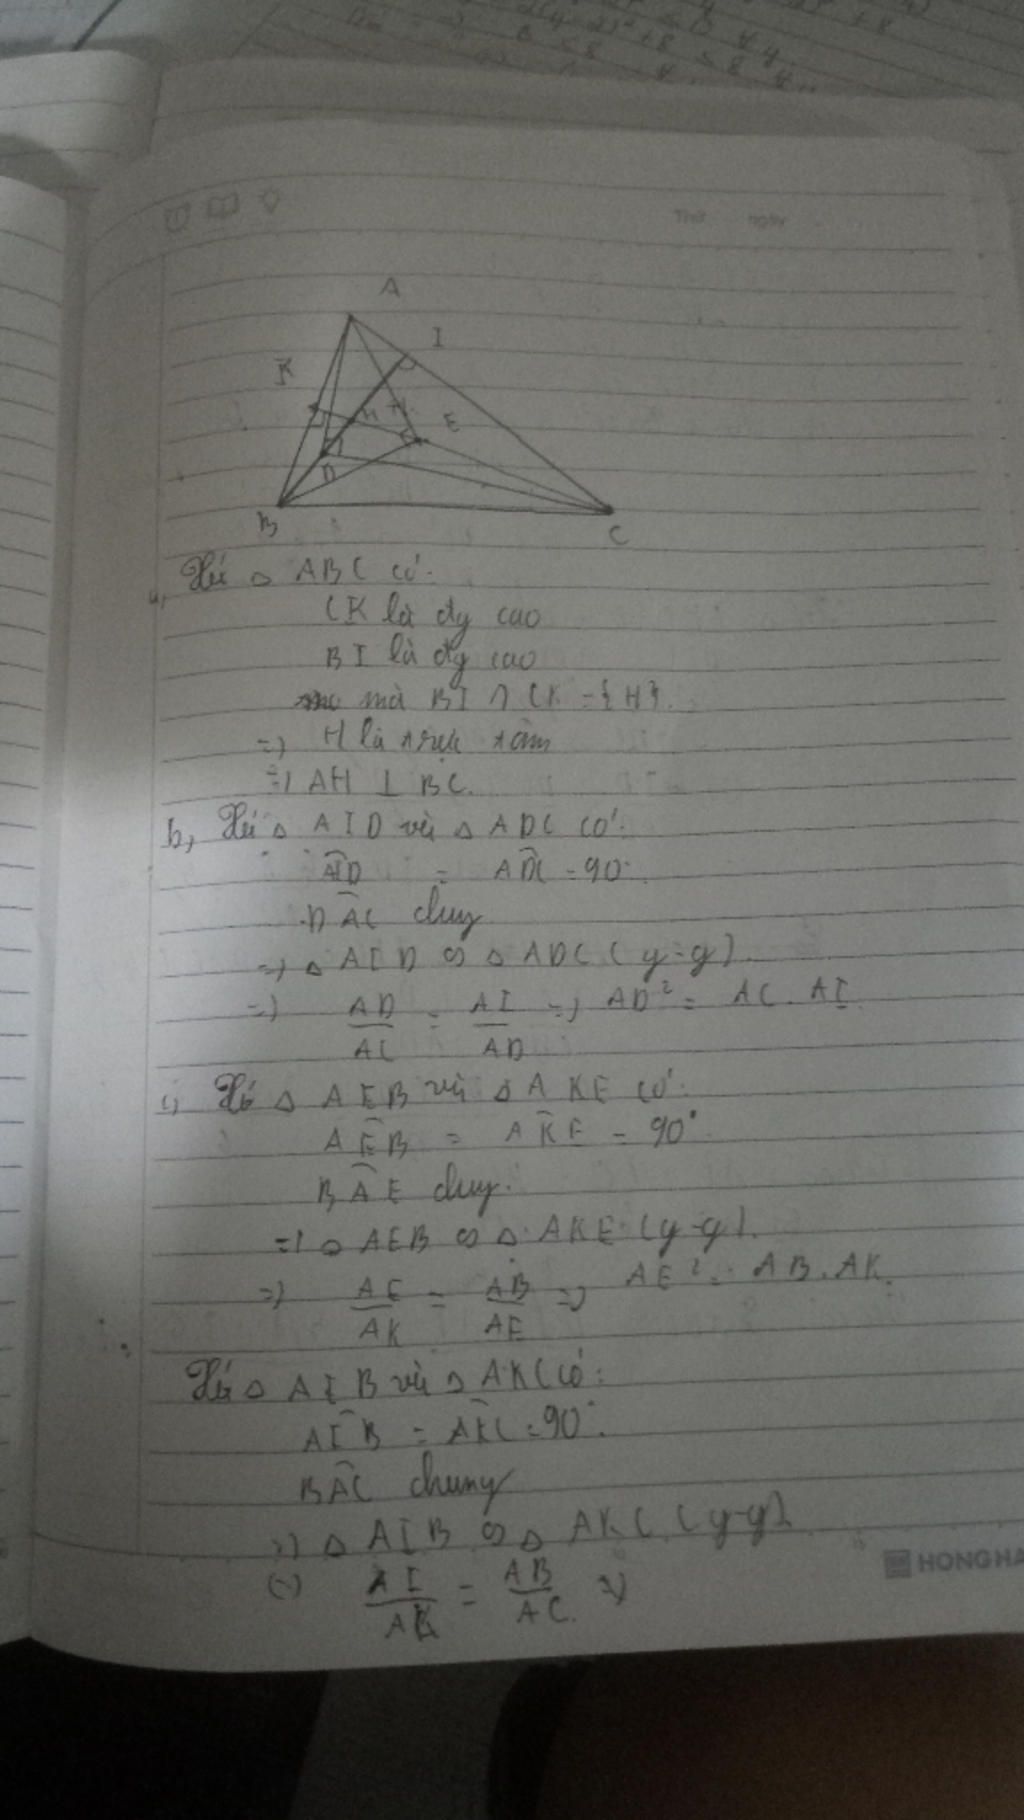 Thứ ngày
A
I
K
H
E
D
B
C
Xét △ ABC có:
a,
CK là đg cao
BI là đg cao
mà BI ∩ CK = {H}.
=> H là trực tâm
=> AH ⊥ BC.
b, Xét △ AID và △ ADC có:
AID = ADC = 90°.
DAC chug
=> △ AID ∽ △ ADC (g-g).
=> AD/AC = AI/AD => AD² = AC . AI.
c, Xét △ AEB và △ AKE có:
AEB = AKE = 90°.
BAE chug.
=> △ AEB ∽ △ AKE (g-g).
=> AE/AK = AB/AE => AE² = AB . AK.
Xét △ AIB và △ AKC có:
AIB = AKC = 90°.
BAC chung
=> △ AIB ∽ △ AKC (g-g)
=> AI/AK = AB/AC. =>
HONG HA